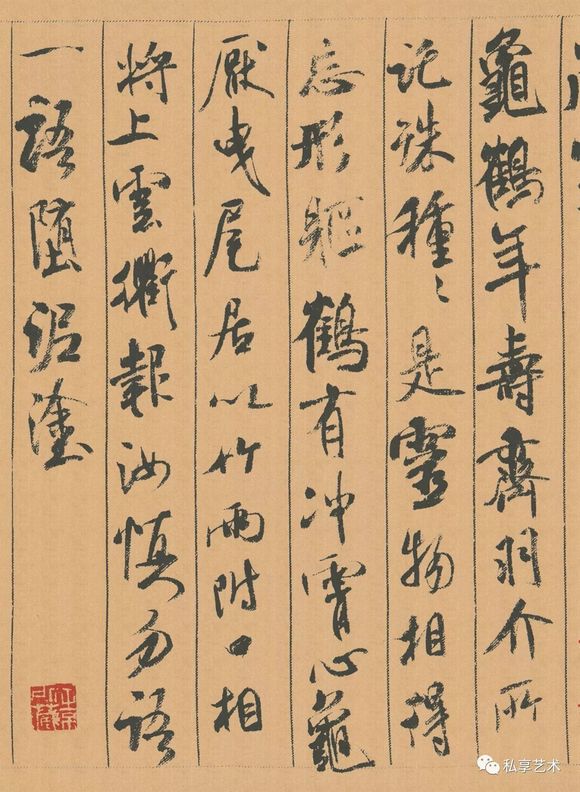 龜鶴年壽齊羽介所
託殊種〻是靈物相得
忘形軀鶴有冲霄心龜
厭曳尾居以竹兩附口相
將上雲衢報汝慎勿語
一語堕泥塗
私享艺术